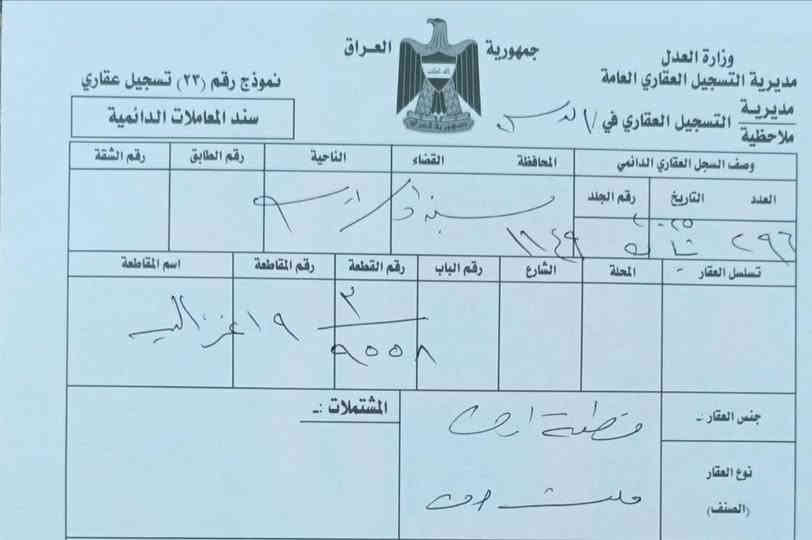 جمهورية العراق
وزارة العدل
مديرية التسجيل العقاري العامة
مديرية
ملاحظية
التسجيل العقاري في
نموذج رقم (٢٣) تسجيل عقاري
سند المعاملات الدائمية
وصف السجل العقاري الدائمي
المحافظة
القضاء
الناحية
رقم الطابق
رقم الشقة
العدد
التاريخ
رقم الجلد
٢٩٦
تسلسل العقار
المحلة
الشارع
رقم الباب
رقم القطعة
رقم المقاطعة
اسم المقاطعة
٣
٩٥٥٨
١٩
جنس العقار -
قطعة ارض
المشتملات :-
نوع العقار
(الصنف)
ملك صرف